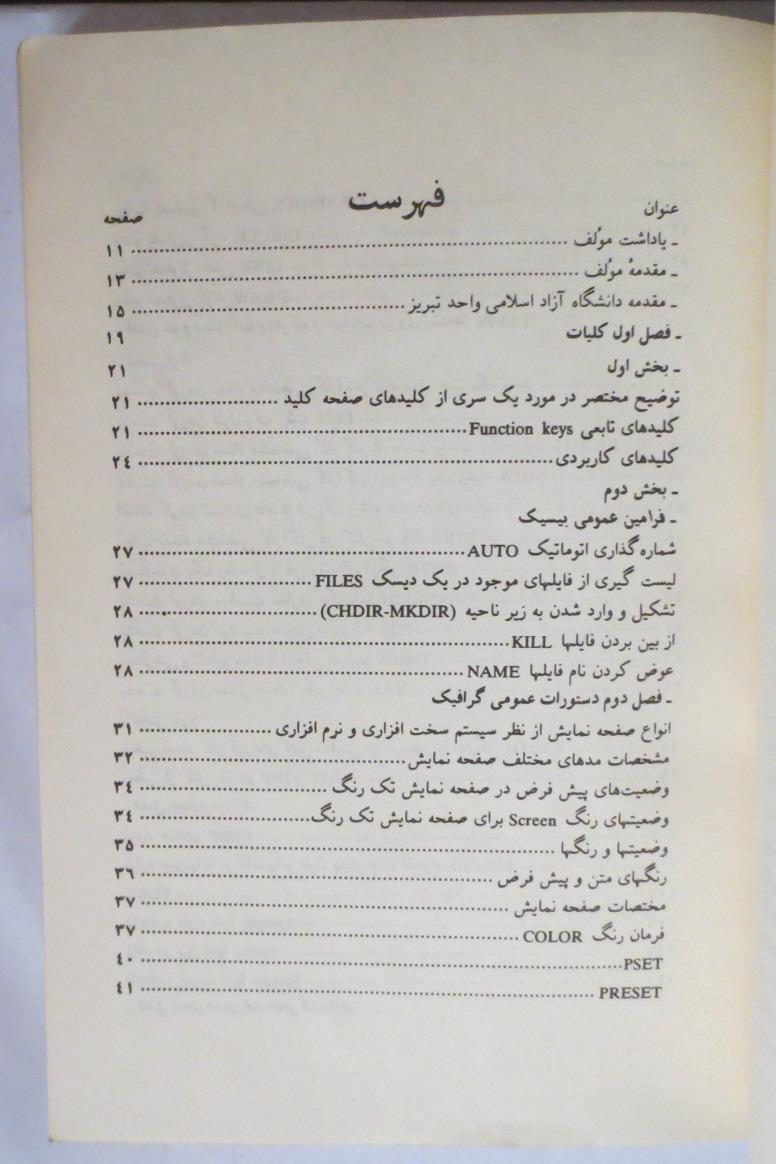 فهرست
عنوان صفحه
ـ یاداشت مؤلف ۱۱
ـ مقدمهٔ مؤلف ۱۳
ـ مقدمه دانشگاه آزاد اسلامی واحد تبریز ۱۵
ـ فصل اول کلیات ۱۹
ـ بخش اول ۲۱
توضیح مختصر در مورد یک سری از کلیدهای صفحه کلید ۲۱
کلیدهای تابعی Function keys ۲۱
کلیدهای کاربردی ۲٤
ـ بخش دوم
ـ فرامین عمومی بیسیک
شماره گذاری اتوماتیک AUTO ۲۷
لیست گیری از فایلهای موجود در یک دیسک FILES ۲۷
تشکیل و وارد شدن به زیر ناحیه (CHDIR-MKDIR) ۲۸
از بین بردن فایلها KILL ۲۸
عوض کردن نام فایلها NAME ۲۸
ـ فصل دوم دستورات عمومی گرافیک
انواع صفحه نمایش از نظر سیستم سخت افزاری و نرم افزاری ۳۱
مشخصات مدهای مختلف صفحه نمایش ۳۲
وضعیت‌های پیش فرض در صفحه نمایش تک رنگ ۳٤
وضعیتهای رنگ Screen برای صفحه نمایش تک رنگ ۳٤
وضعیتها و رنگها ۳۵
رنگهای متن و پیش فرض ۳۶
مختصات صفحه نمایش ۳۷
فرمان رنگ COLOR ۳۷
PSET ٤۰
PRESET ٤۱